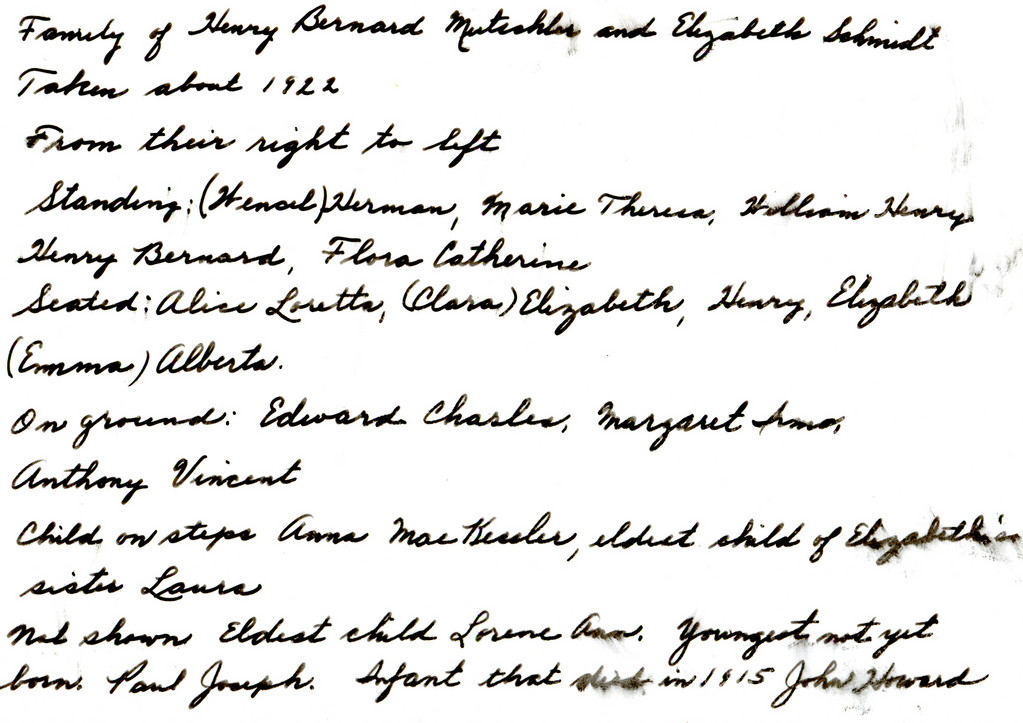 Family of Henry Bernard Mutschler and Elizabeth Schmidt
Taken about 1922
From their right to left
Standing: (Wensel) Herman, Marie Theresa, William Henry
Henry Bernard, Flora Catherine
Seated: Alice Loretta, (Clara) Elizabeth, Henry, Elizabeth
(Emma) Alberta.
On ground: Edward Charles, Margaret Irma,
Anthony Vincent
Child on steps Anna Mae Kessler, eldest child of Elizabeth's
sister Laura
Not shown Eldest child Lorene Ann. Youngest not yet
born. Paul Joseph. Infant that died in 1915 John Howard